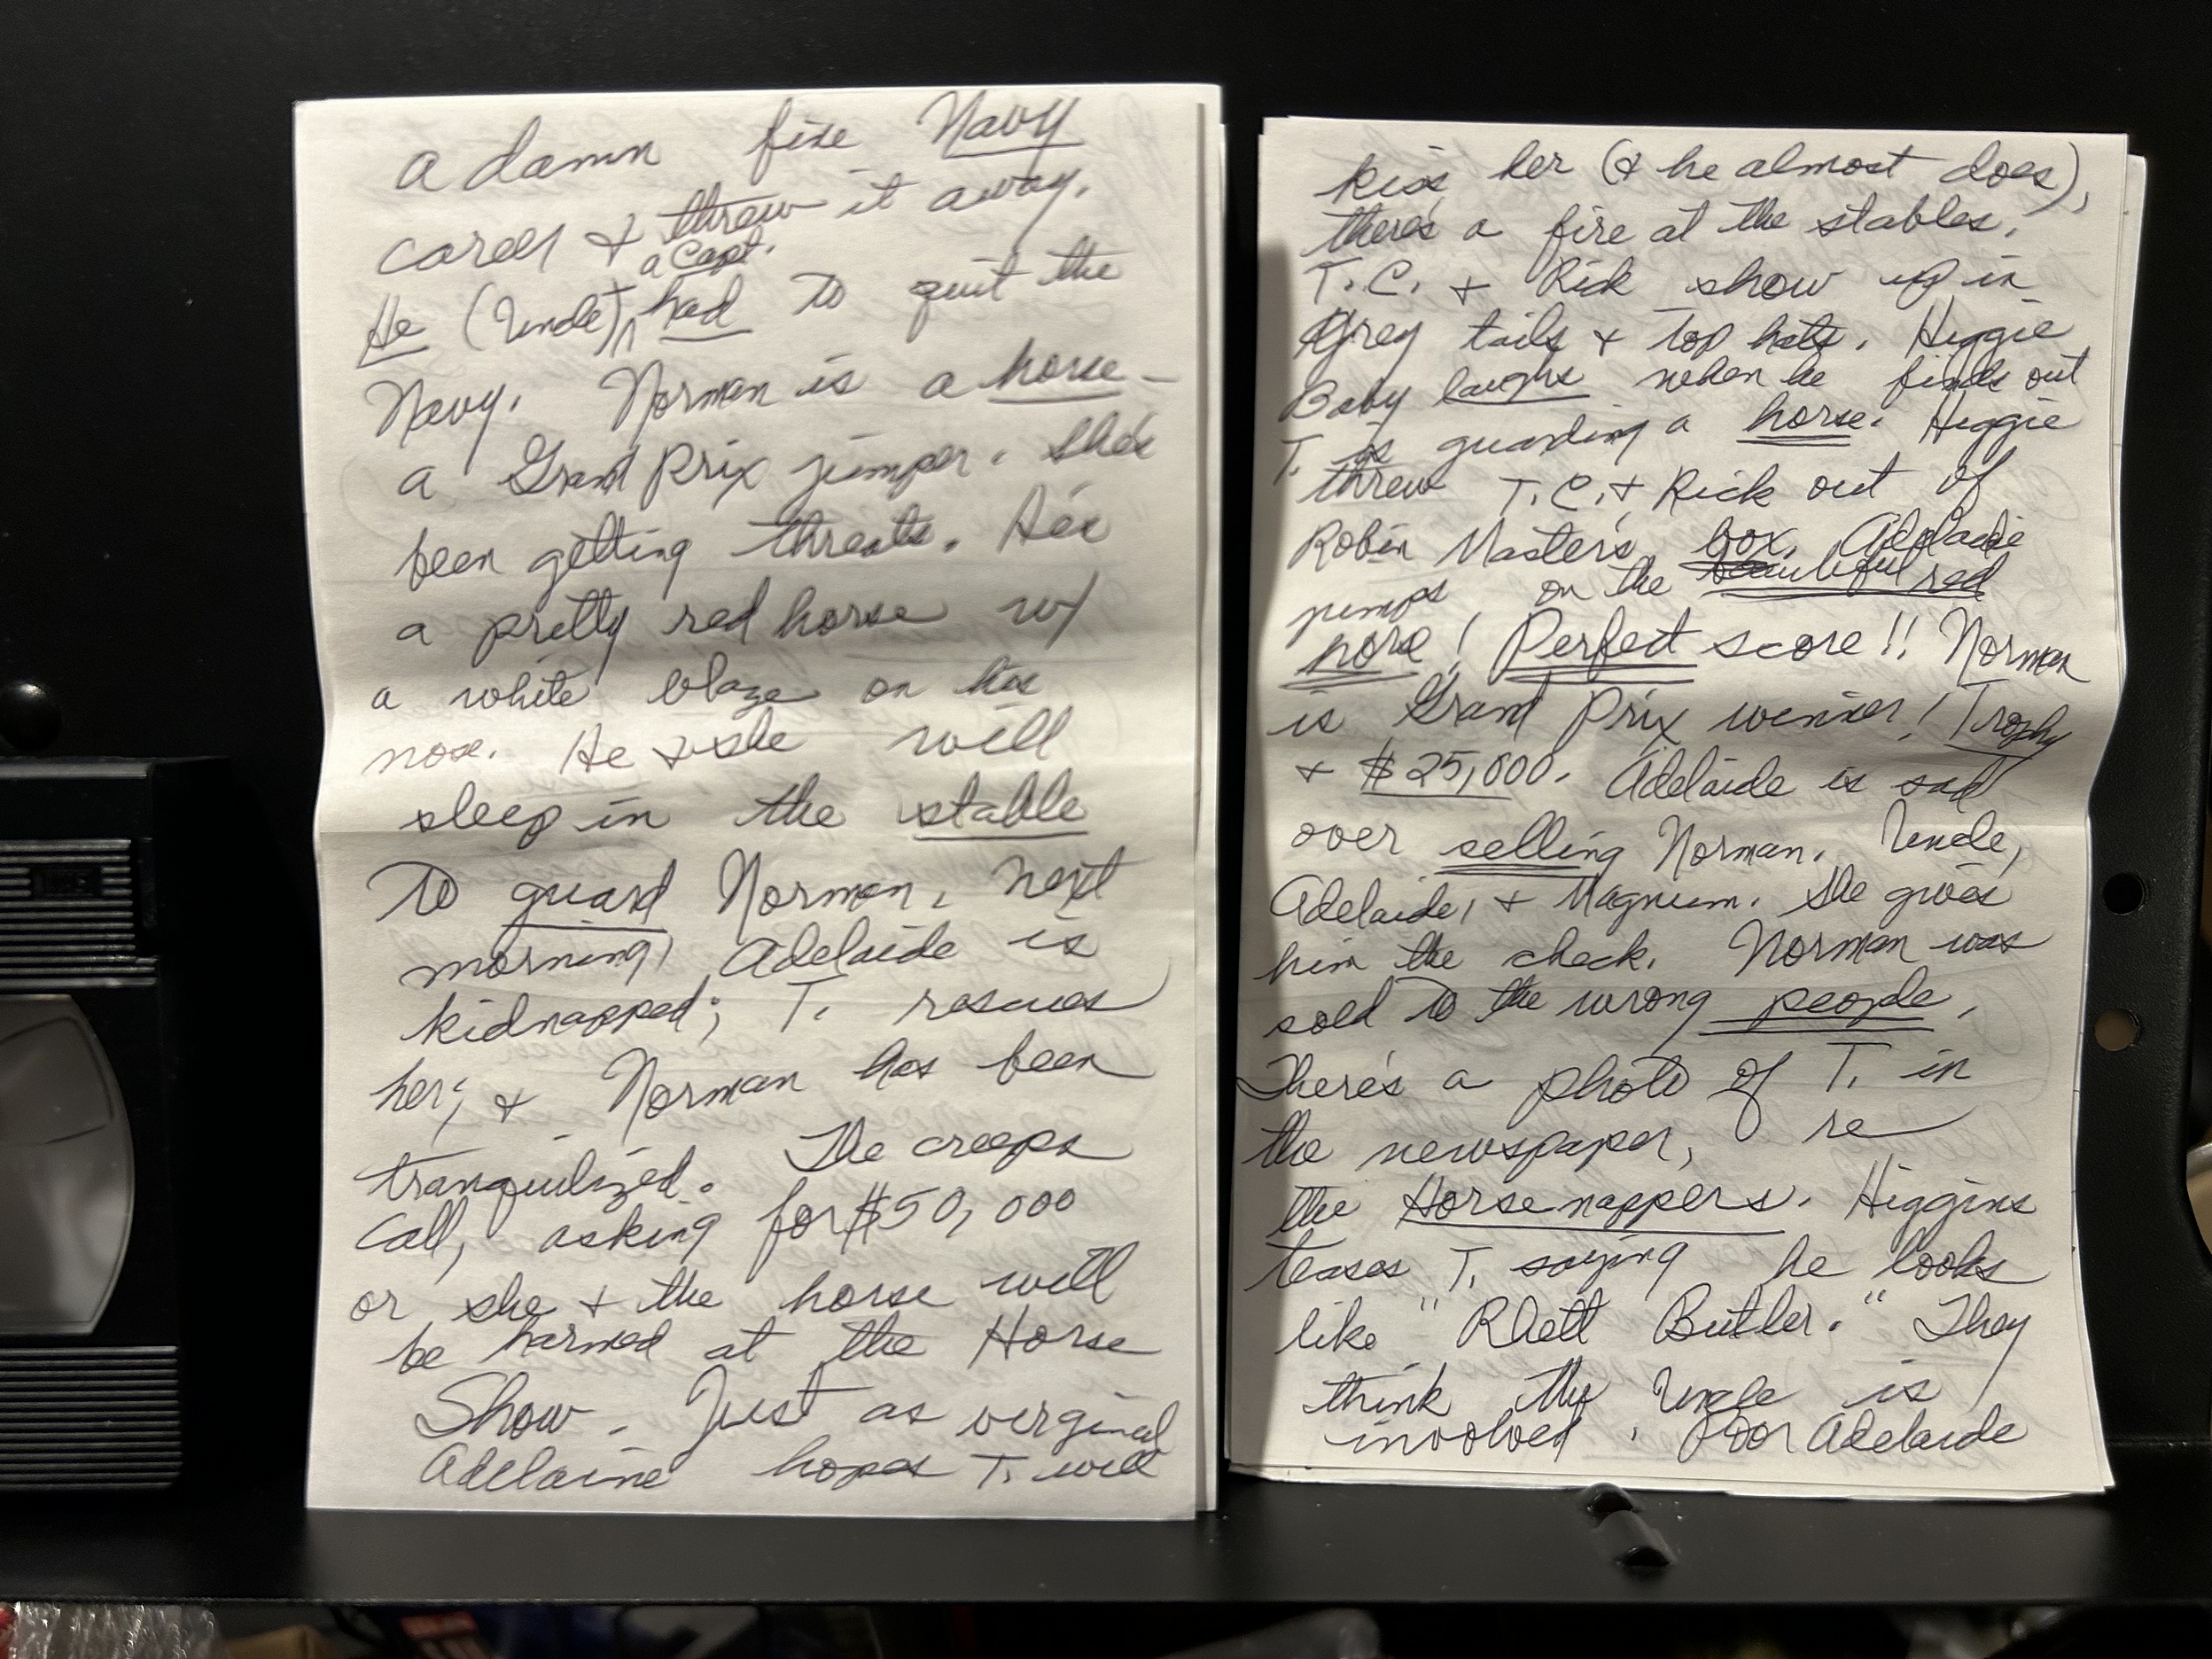 a damn fine Navy
career & threw it away.
a Capt.
He (Uncle) had to quit the
Navy. Norman is a horse -
a Grand Prix jumper. She's
been getting threats. He's
a pretty red horse w/
a white blaze on his
nose. He & she will
sleep in the stable
to guard Norman. Next
morning, Adelaide is
kidnapped; T. rescues
her; & Norman has been
tranquilized. The creeps
call, asking for $50,000
or she & the horse will
be harmed at the Horse
Show. Just as verginal
Adelaine hopes T. will
kiss her (& he almost does),
there's a fire at the stables.
T.C. & Rick show up in
Grey tails & Top hats. Higgie
Baby laughs when he finds out
T. is guarding a horse. Higgie
threw T.C. & Rick out of
Robin Master's box. Adelaide
jumps on the beautiful red
horse! Perfect score!! Norman
is Grand Prix winner! Trophy
+ $25,000. Adelaide is sad
over selling Norman. Uncle,
Adelaide, & Magnum. She gives
him the check. Norman was
sold to the wrong people.
There's a photo of T. in
the newspaper, re
the Horsenappers. Higgins
teases T. saying he looks
like "Rhett Butler." They
think the Uncle is
involved. Poor Adelaide